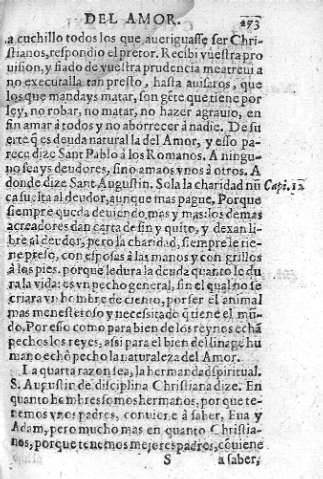 DEL AMOR. 273
a cuchillo todos los que aueriguasse ser Chri-
stianos, respondio el pretor. Recibi vuestra pro
uision, y fiado de vuestra prudencia me atreui a
no executalla tan presto, hasta auisaros, que
los que mandays matar, son gẽte que tiene por
ley, no robar, no matar, no hazer agrauio, en
fin amar à todos y no aborrecer à nadie. De su
erte q̃ es deuda natural la del Amor, y esso pa-
rece dize Sant Pablo à los Romanos. A ningu-
no seays deudores, sino amaos vnos à otros. A
donde dize Sant Augustin. Sola la charidad nũ Capi. 12
ca suelta al deudor, aunque mas pague. Porque
siempre queda deuiendo mas y mas: los demas
acreadores dan carta de fin y quito, y dexan li-
bre al deudor, pero la charidad, siempre le tie-
ne preso, con esposas à las manos y con grillos
à los pies. porque le dura la deuda quanto le du
ra la vida: es vn pecho general, sin el qual no se
criara vn hombre de ciento, por ser el animal
mas menesteroso y necessitado q̃ tiene el mũ-
do. Por esso como para bien de los reynos echã
pechos los reyes, assi para el bien del linage hu
mano echò pecho la naturaleza del Amor.
La quarta razon sea, la hermandad spiritual.
S. Augustin de disciplina Christiana dize. En
quanto hombres somos hermanos, porque te-
nemos vnos padres, conuiene à saber, Eua y
Adam, pero mucho mas en quanto Christia-
nos, porque tenemos mejores padres, cõuiene
S a saber,